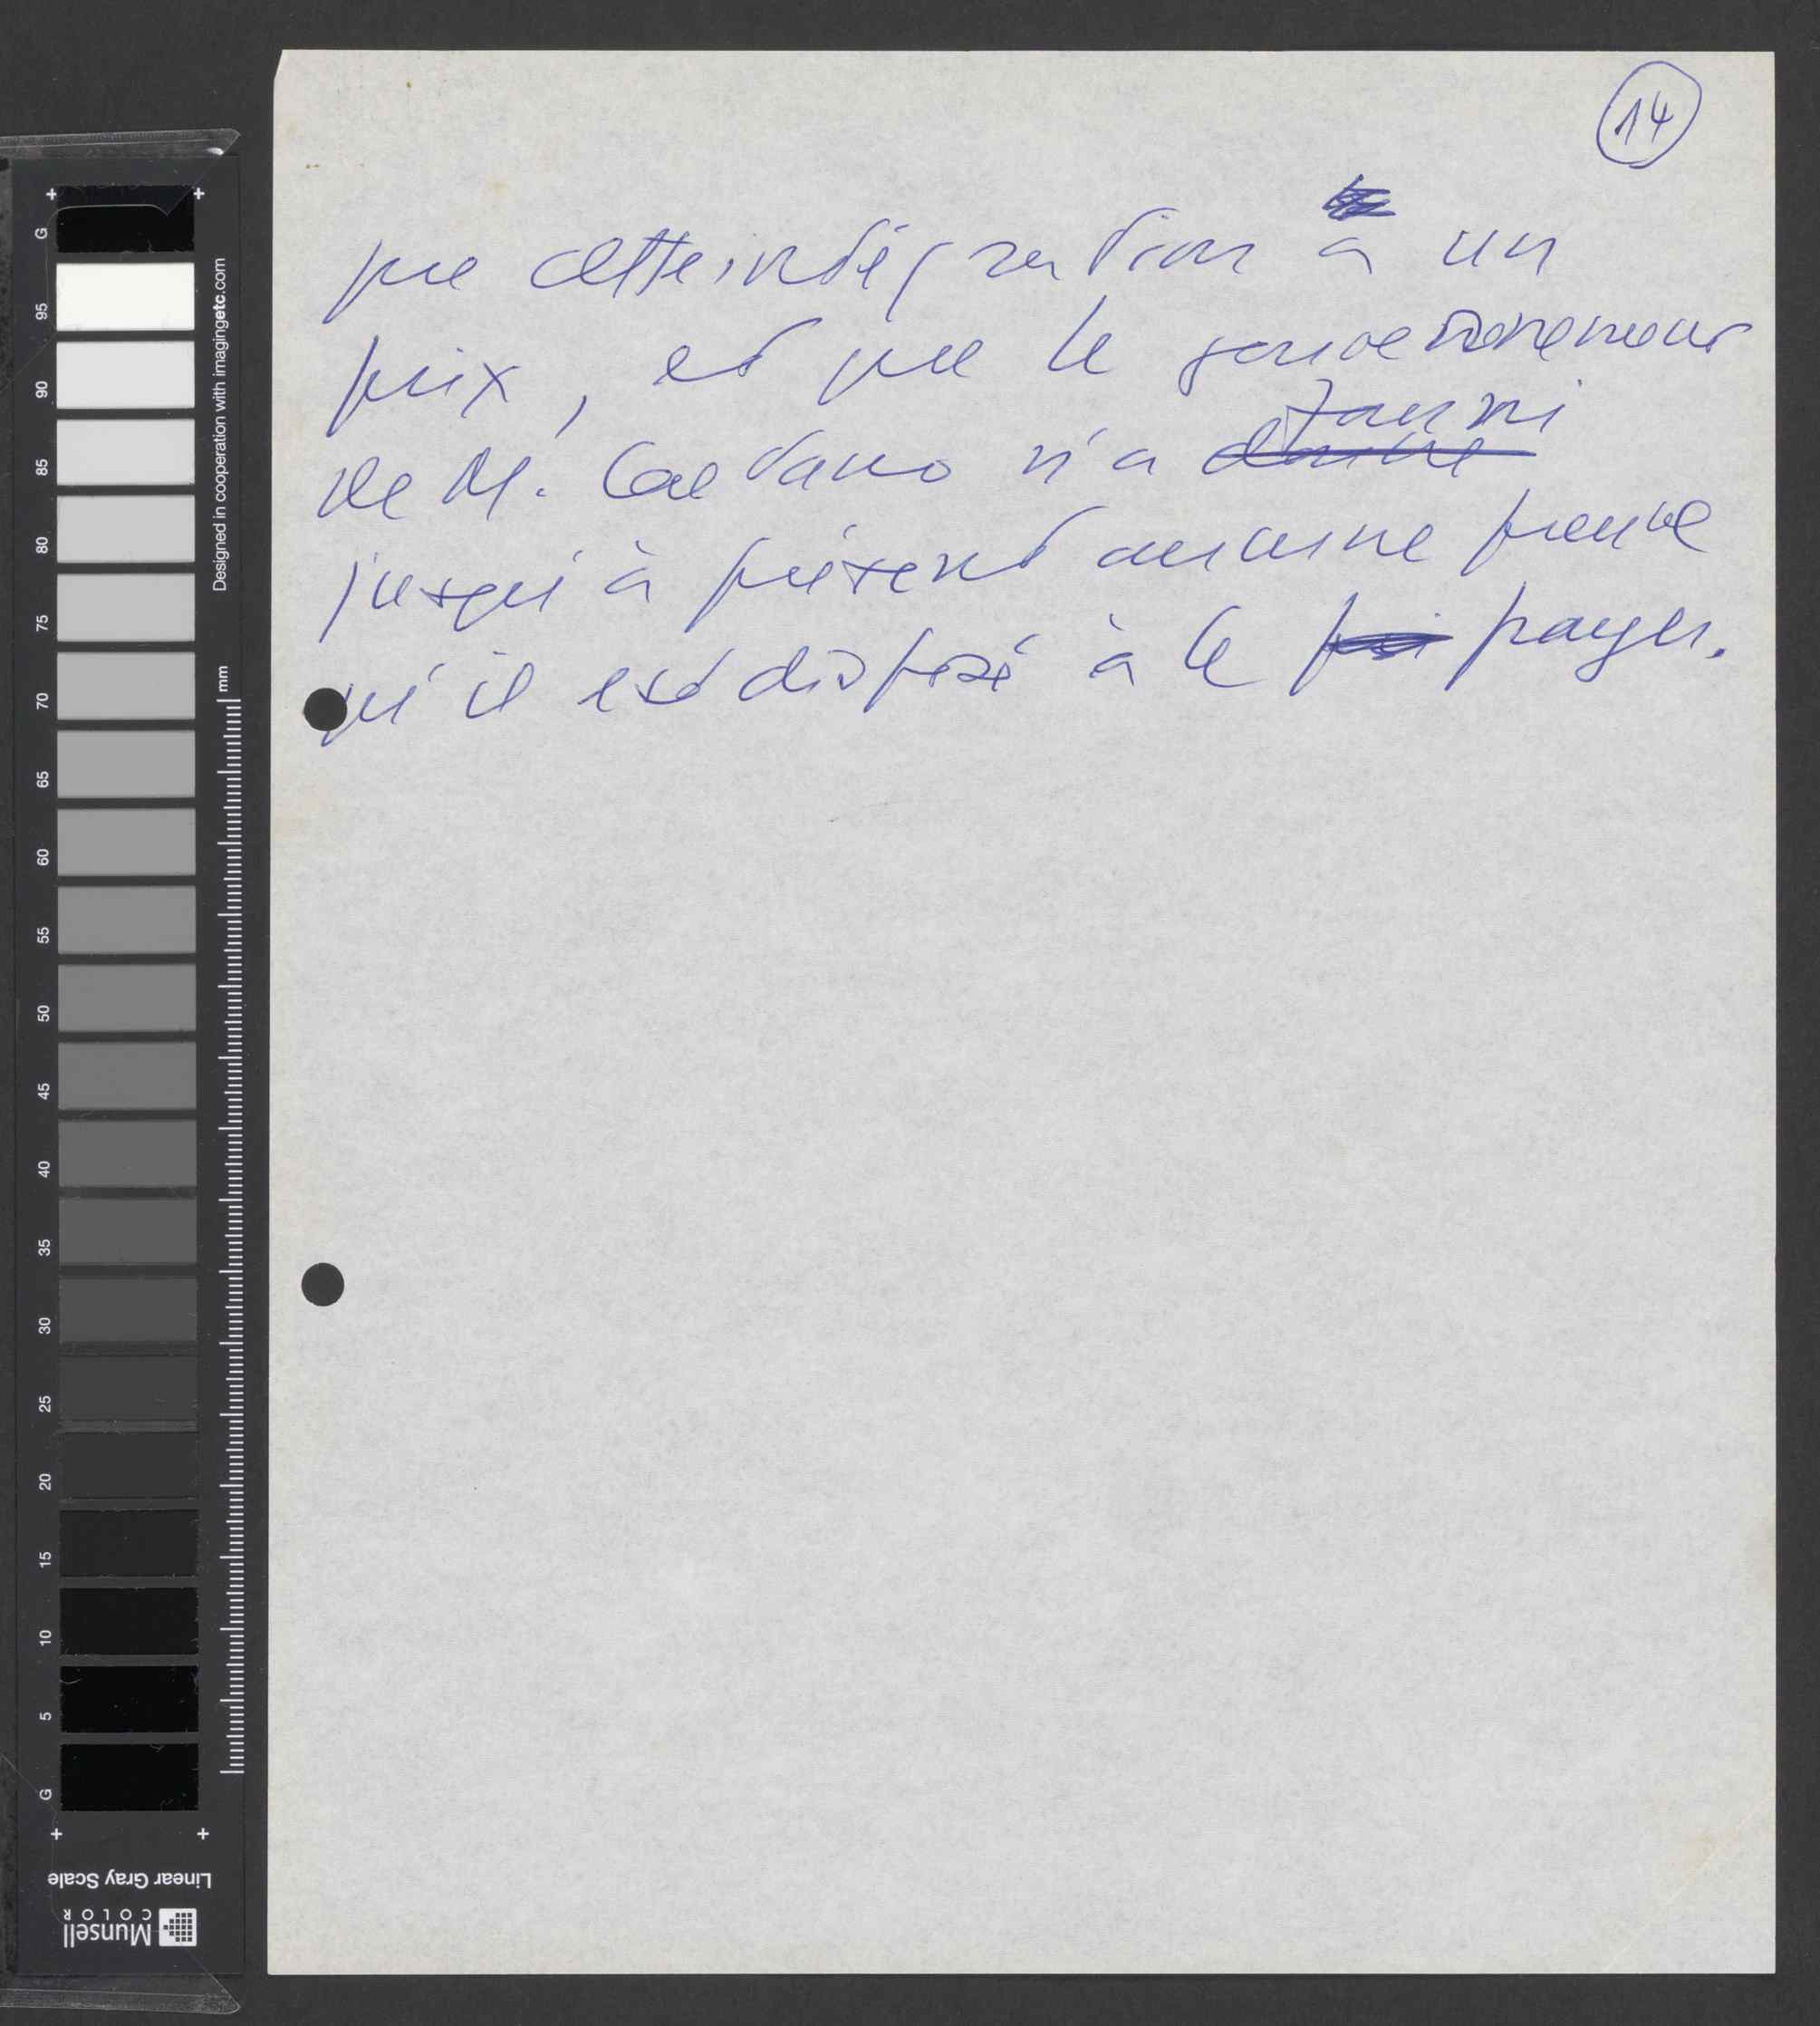 14
que cette intégration a un
prix, et que le gouvernement
fourni
de M. Caetano n'a donné
jusqu'à présent aucune preuve
qu'il est disposé à le payer.
G
95
90
85
80
75
70
65
60
55
50
45
40
35
30
25
20
15
10
5
G
Designed in cooperation with imagingetc.com
mm
Linear Gray Scale
Munsell
COLOR